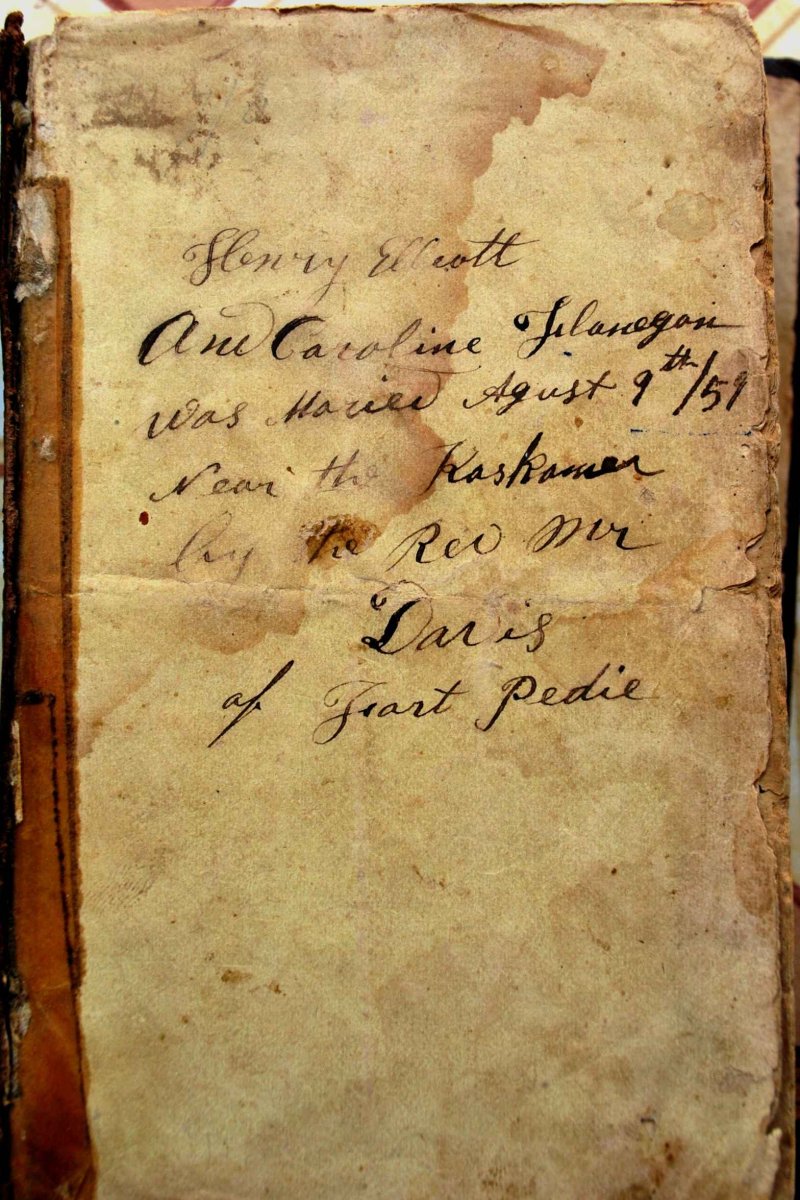 Henry Ellcott
And Caroline Flanegan
was Maried Agust 9th/59
Near the Kaskamer
by the Rev Mr
Davis
of Foart Pedie